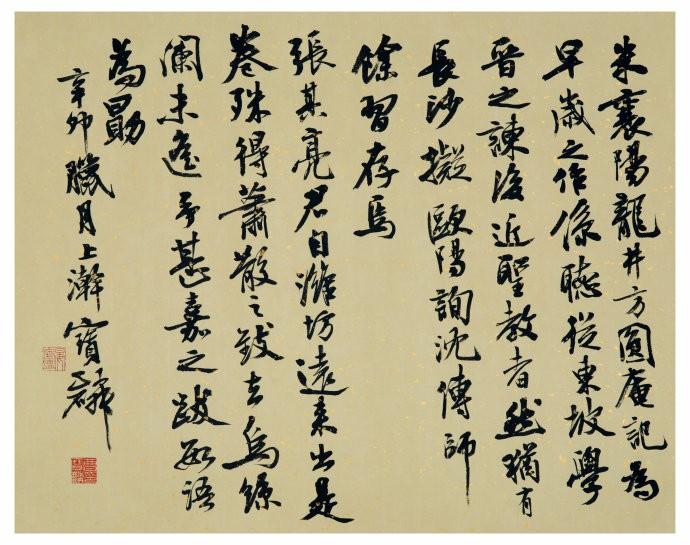 米襄陽龍井方圓庵記為
早歲之作係聽從東坡學
晉之諫後近聖教者然猶有
長沙擬歐陽詢沈傳師
餘習存焉
張其亮君自濰坊遠來出是
卷殊得蕭散之致去烏絲
瀾未遠予甚嘉之跋數語
為勖
辛卯臘月上澣寶麟